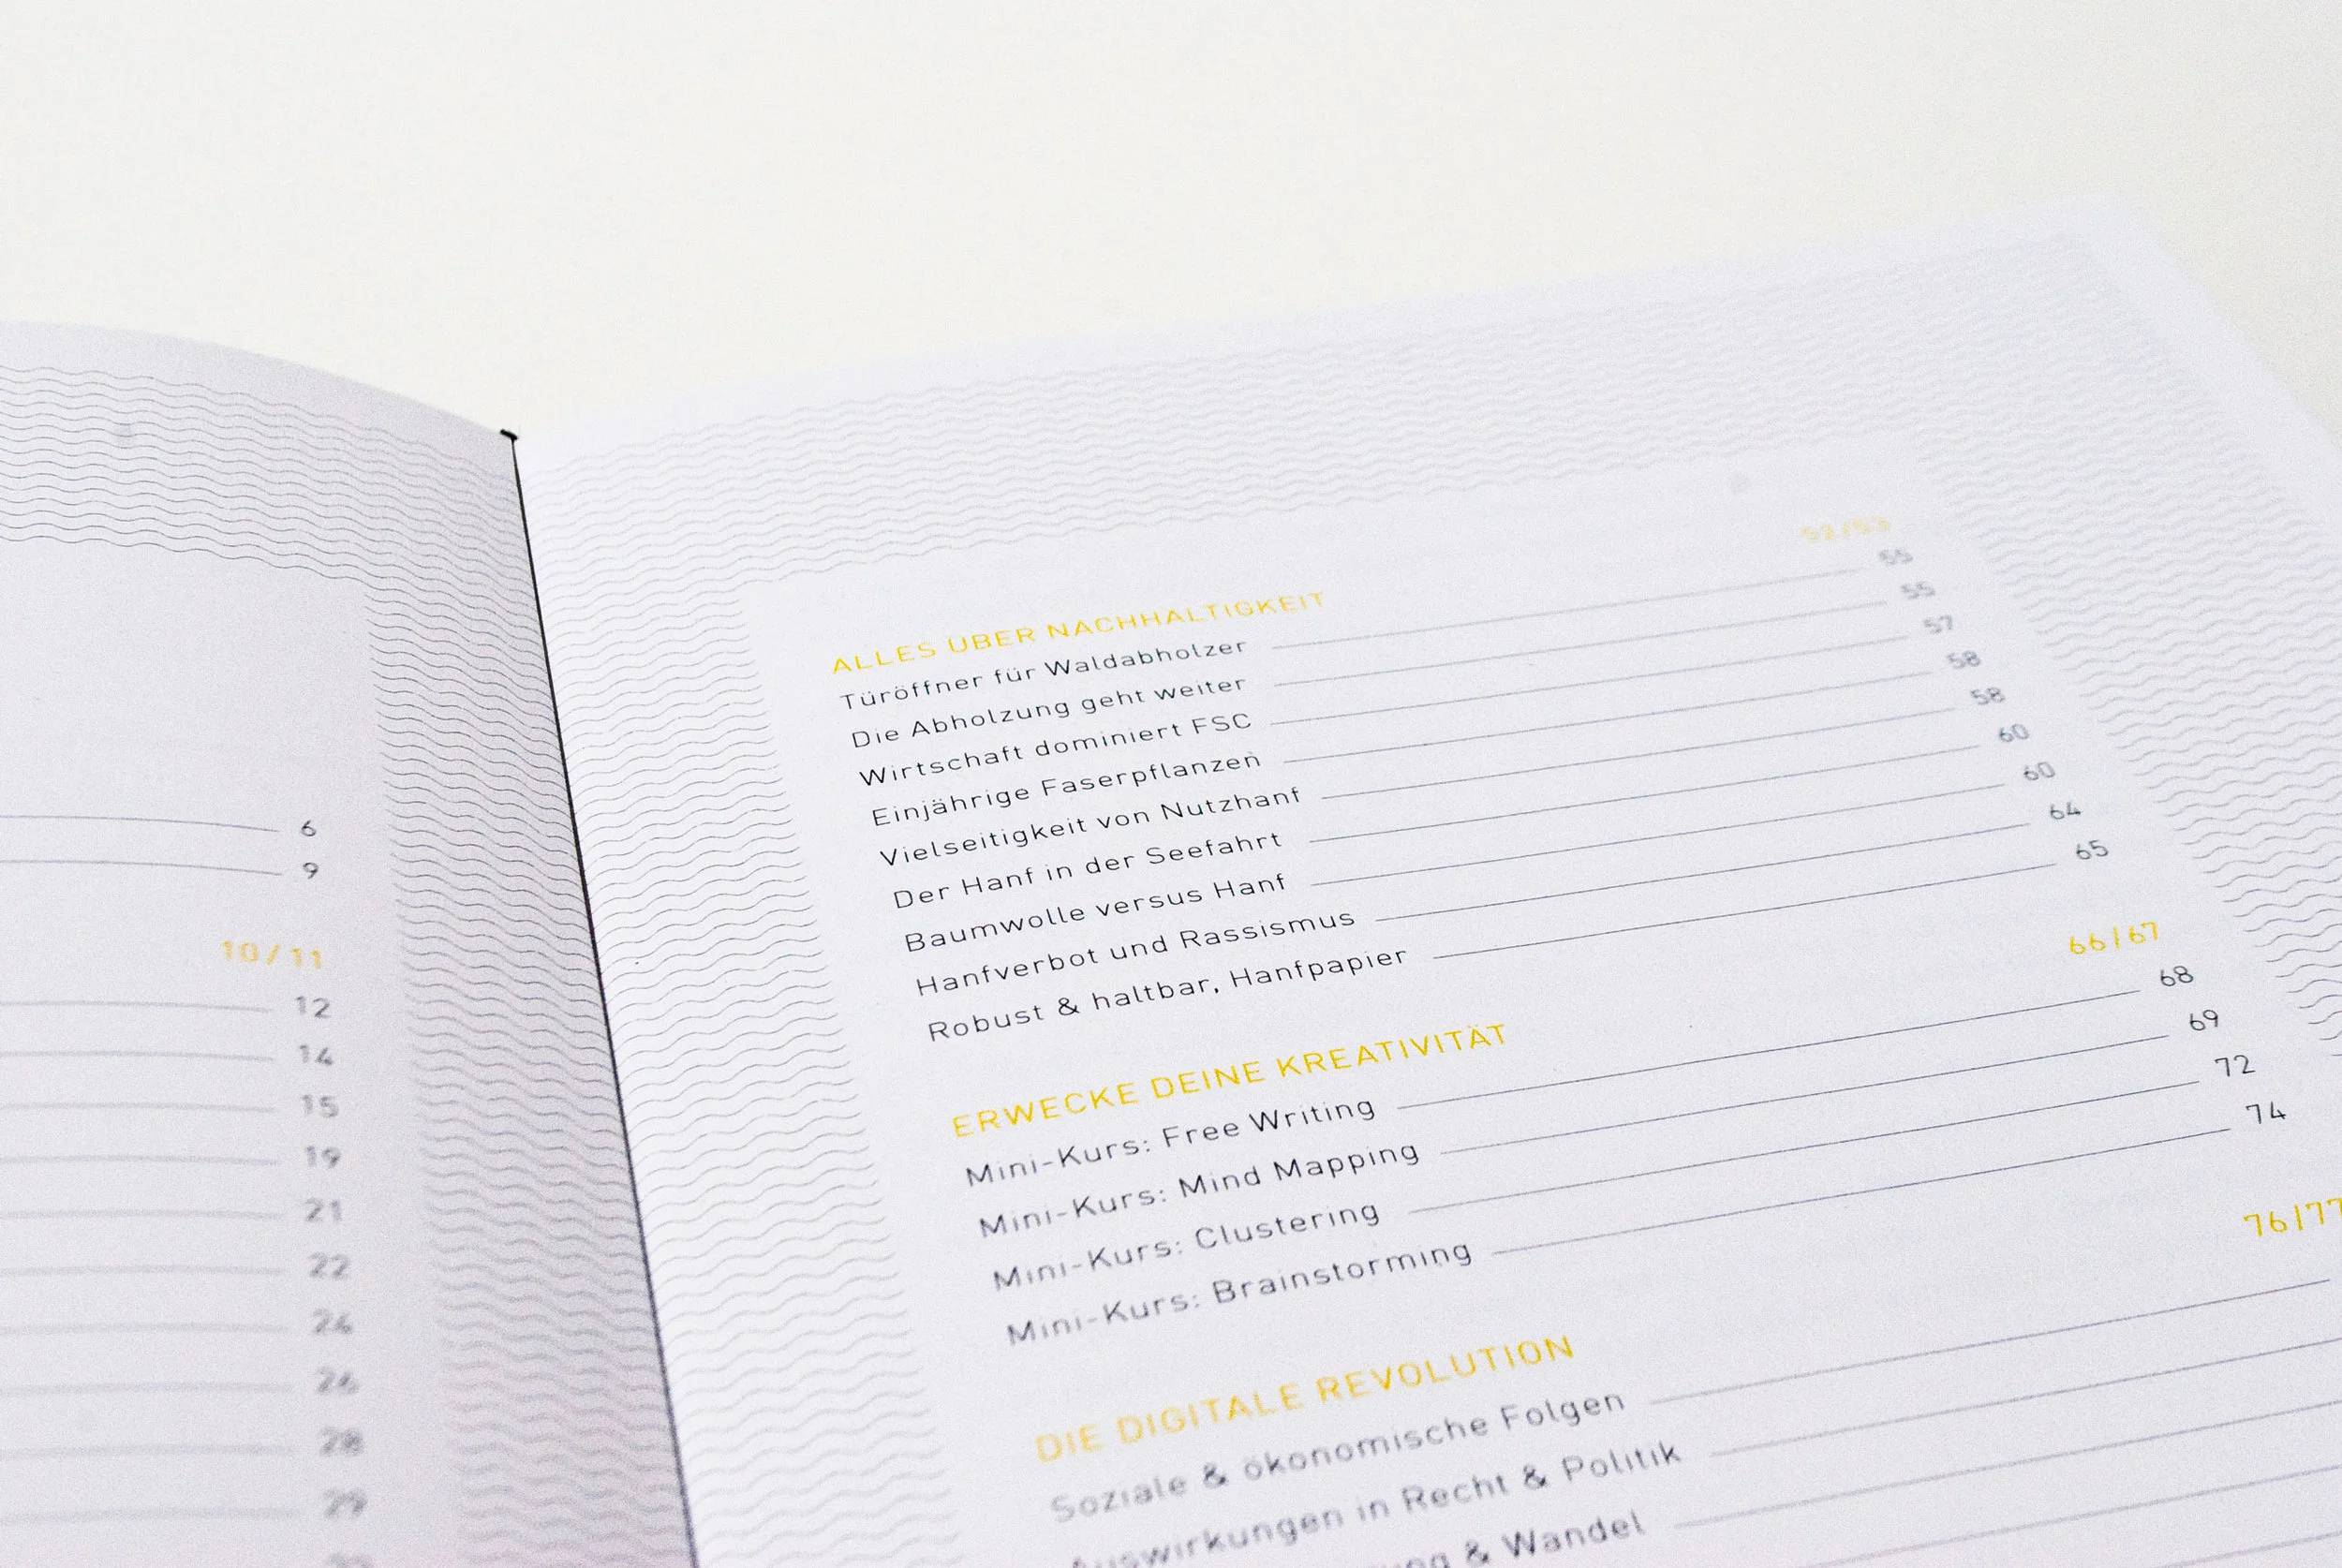 6
9
10/11
12
14
15
19
21
22
24
26
28
29
ALLES ÜBER NACHHALTIGKEIT 52/53
Türöffner für Waldabholzer 55
Die Abholzung geht weiter 55
Wirtschaft dominiert FSC 57
Einjährige Faserpflanzen 58
Vielseitigkeit von Nutzhanf 58
Der Hanf in der Seefahrt 60
Baumwolle versus Hanf 60
Hanfverbot und Rassismus 64
Robust & haltbar, Hanfpapier 65
ERWECKE DEINE KREATIVITÄT 66/67
Mini-Kurs: Free Writing 68
Mini-Kurs: Mind Mapping 69
Mini-Kurs: Clustering 72
Mini-Kurs: Brainstorming 74
DIE DIGITALE REVOLUTION 76/77
Soziale & ökonomische Folgen
Auswirkungen in Recht & Politik
& Wandel